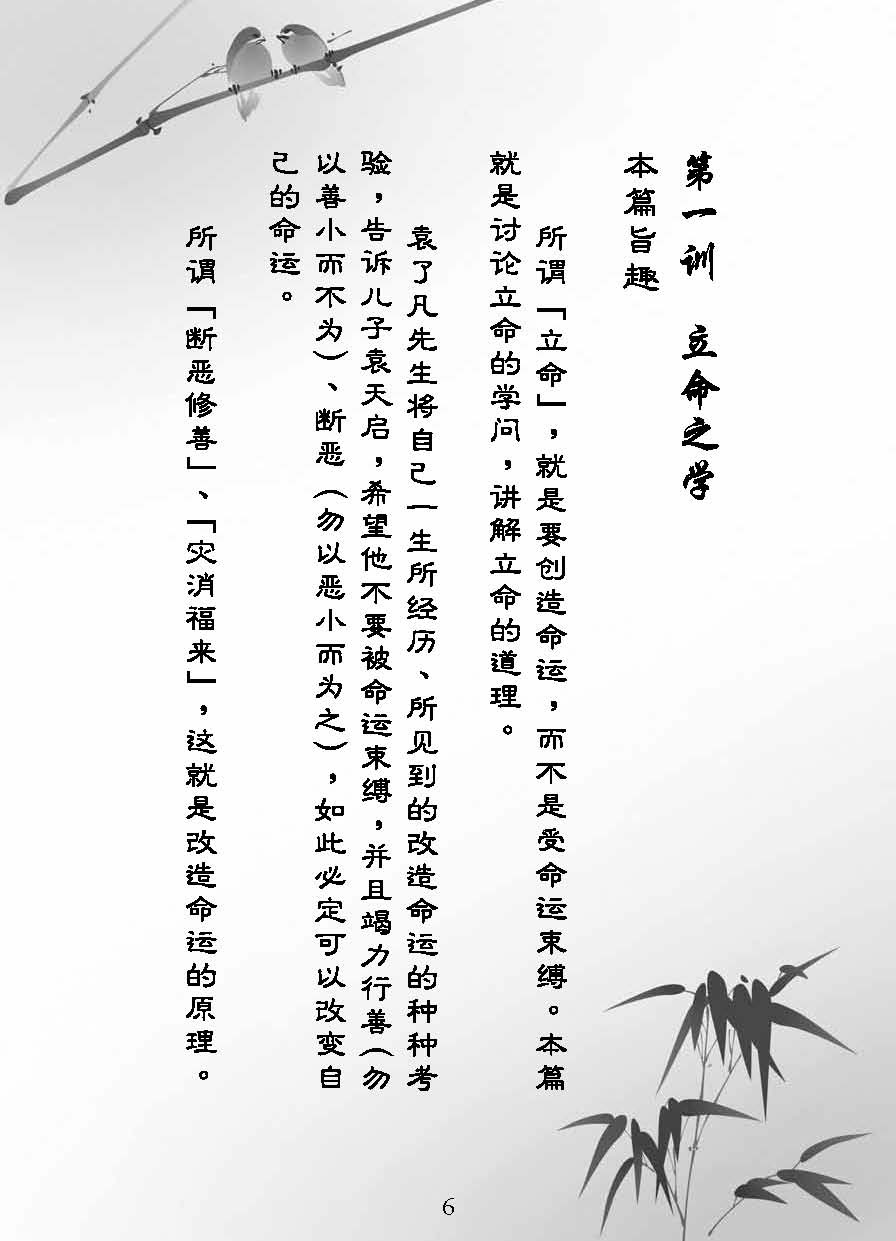 第一训　立命之学
本篇旨趣
所谓「立命」，就是要创造命运，而不是受命运束缚。本篇
就是讨论立命的学问，讲解立命的道理。
袁了凡先生将自己一生所经历、所见到的改造命运的种种考
验，告诉儿子袁天启，希望他不要被命运束缚，并且竭力行善（勿
以善小而不为）、断恶（勿以恶小而为之），如此必定可以改变自
己的命运。
所谓「断恶修善」、「灾消福来」，这就是改造命运的原理。
6